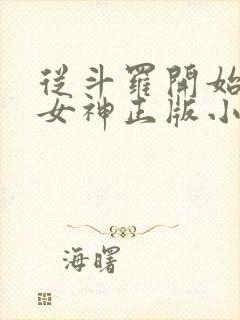 從斗羅開始
女神正版小
海曙